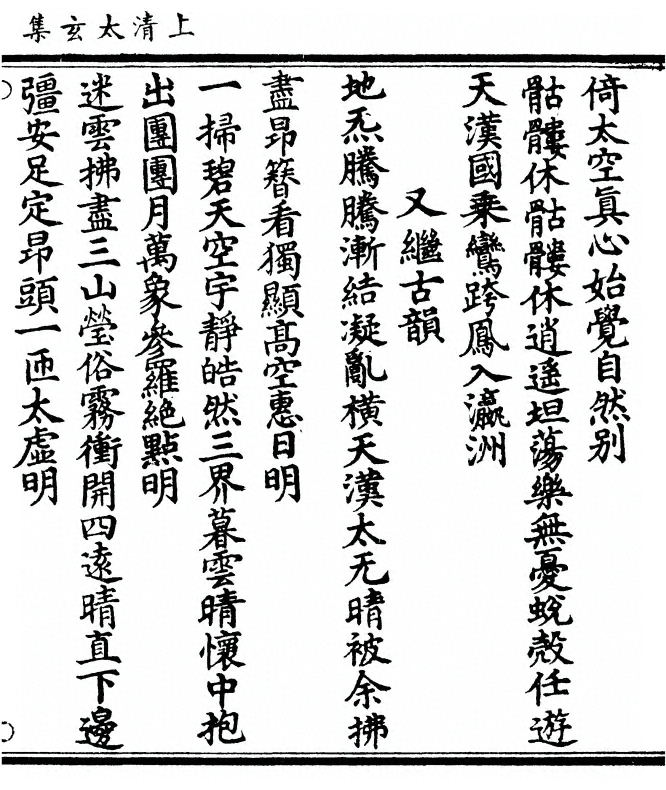 上清太玄集
倚太空真心始覺自然别
骷髏休骷髏休逍遥坦蕩樂無憂蛻殼任遊
天漢國乗鸞跨鳳入瀛洲
又繼古韻
地炁騰騰漸結凝亂横天漢太无晴被余拂
盡昂簮看獨顯高空惠日明
一掃碧天空宇靜皓然三界暮雲晴懷中抱
出團團月萬象參羅絶點明
迷雲拂盡三山瑩俗霧衝開四遠晴直下邊
彊安足定昂頭一匝太虚明